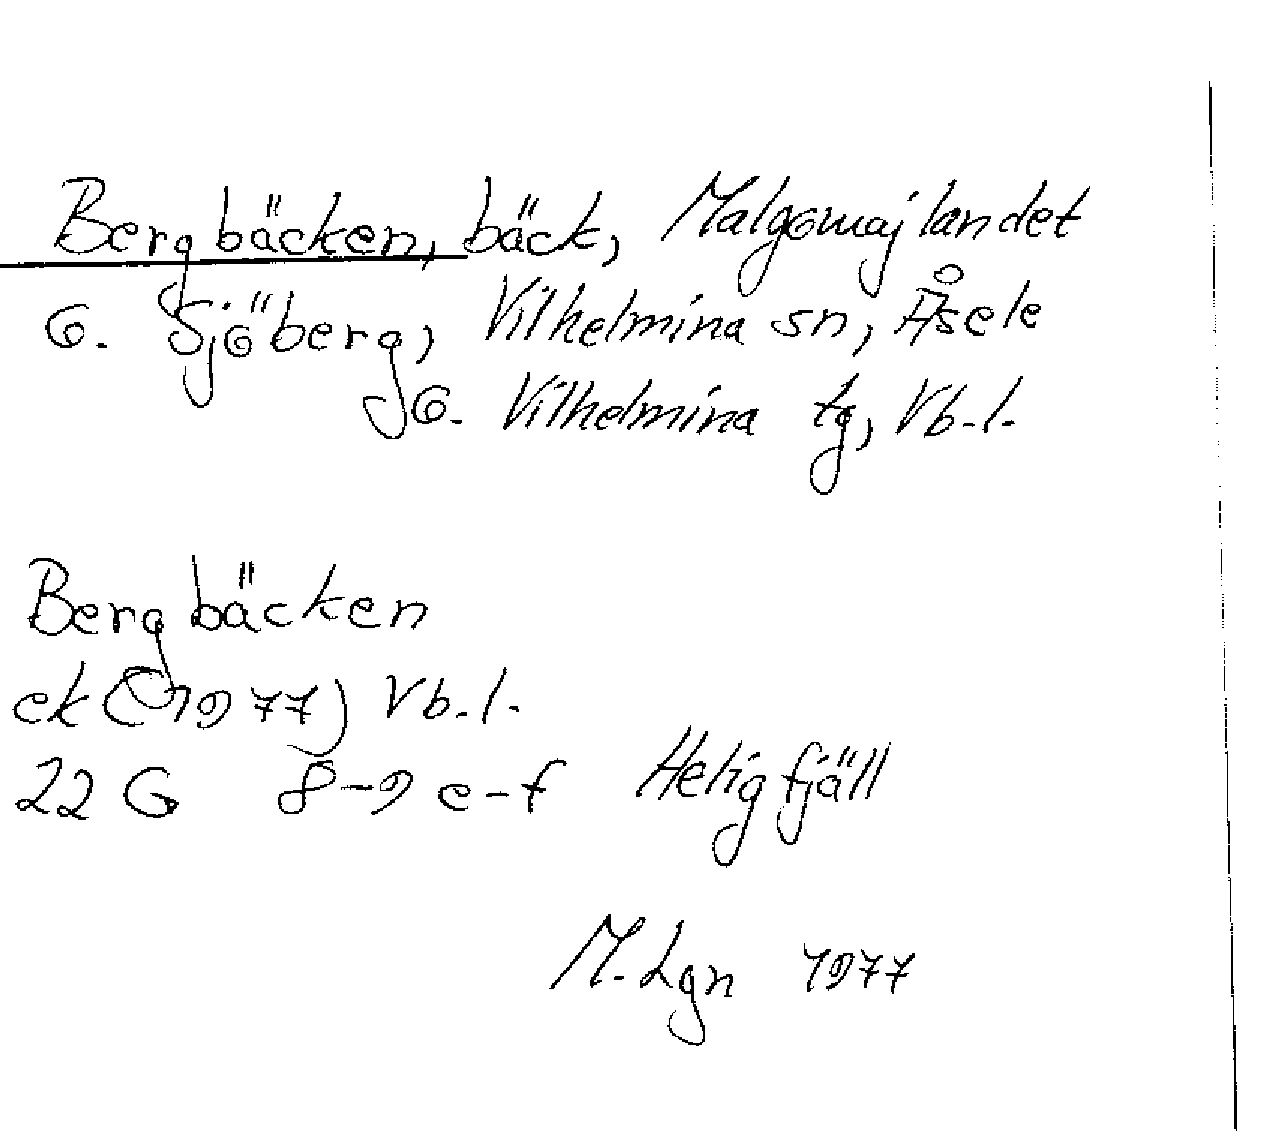 Bergbäcken, bäck, Malgomajlandet
G. Sjöberg, Vilhelmina sn, Åsele
G. Vilhelmina tg, Vb.l.
Bergbäcken
ek (1977) Vb.l.
22 G 8-9 e-f Heligfjäll
M. Lgn 1977